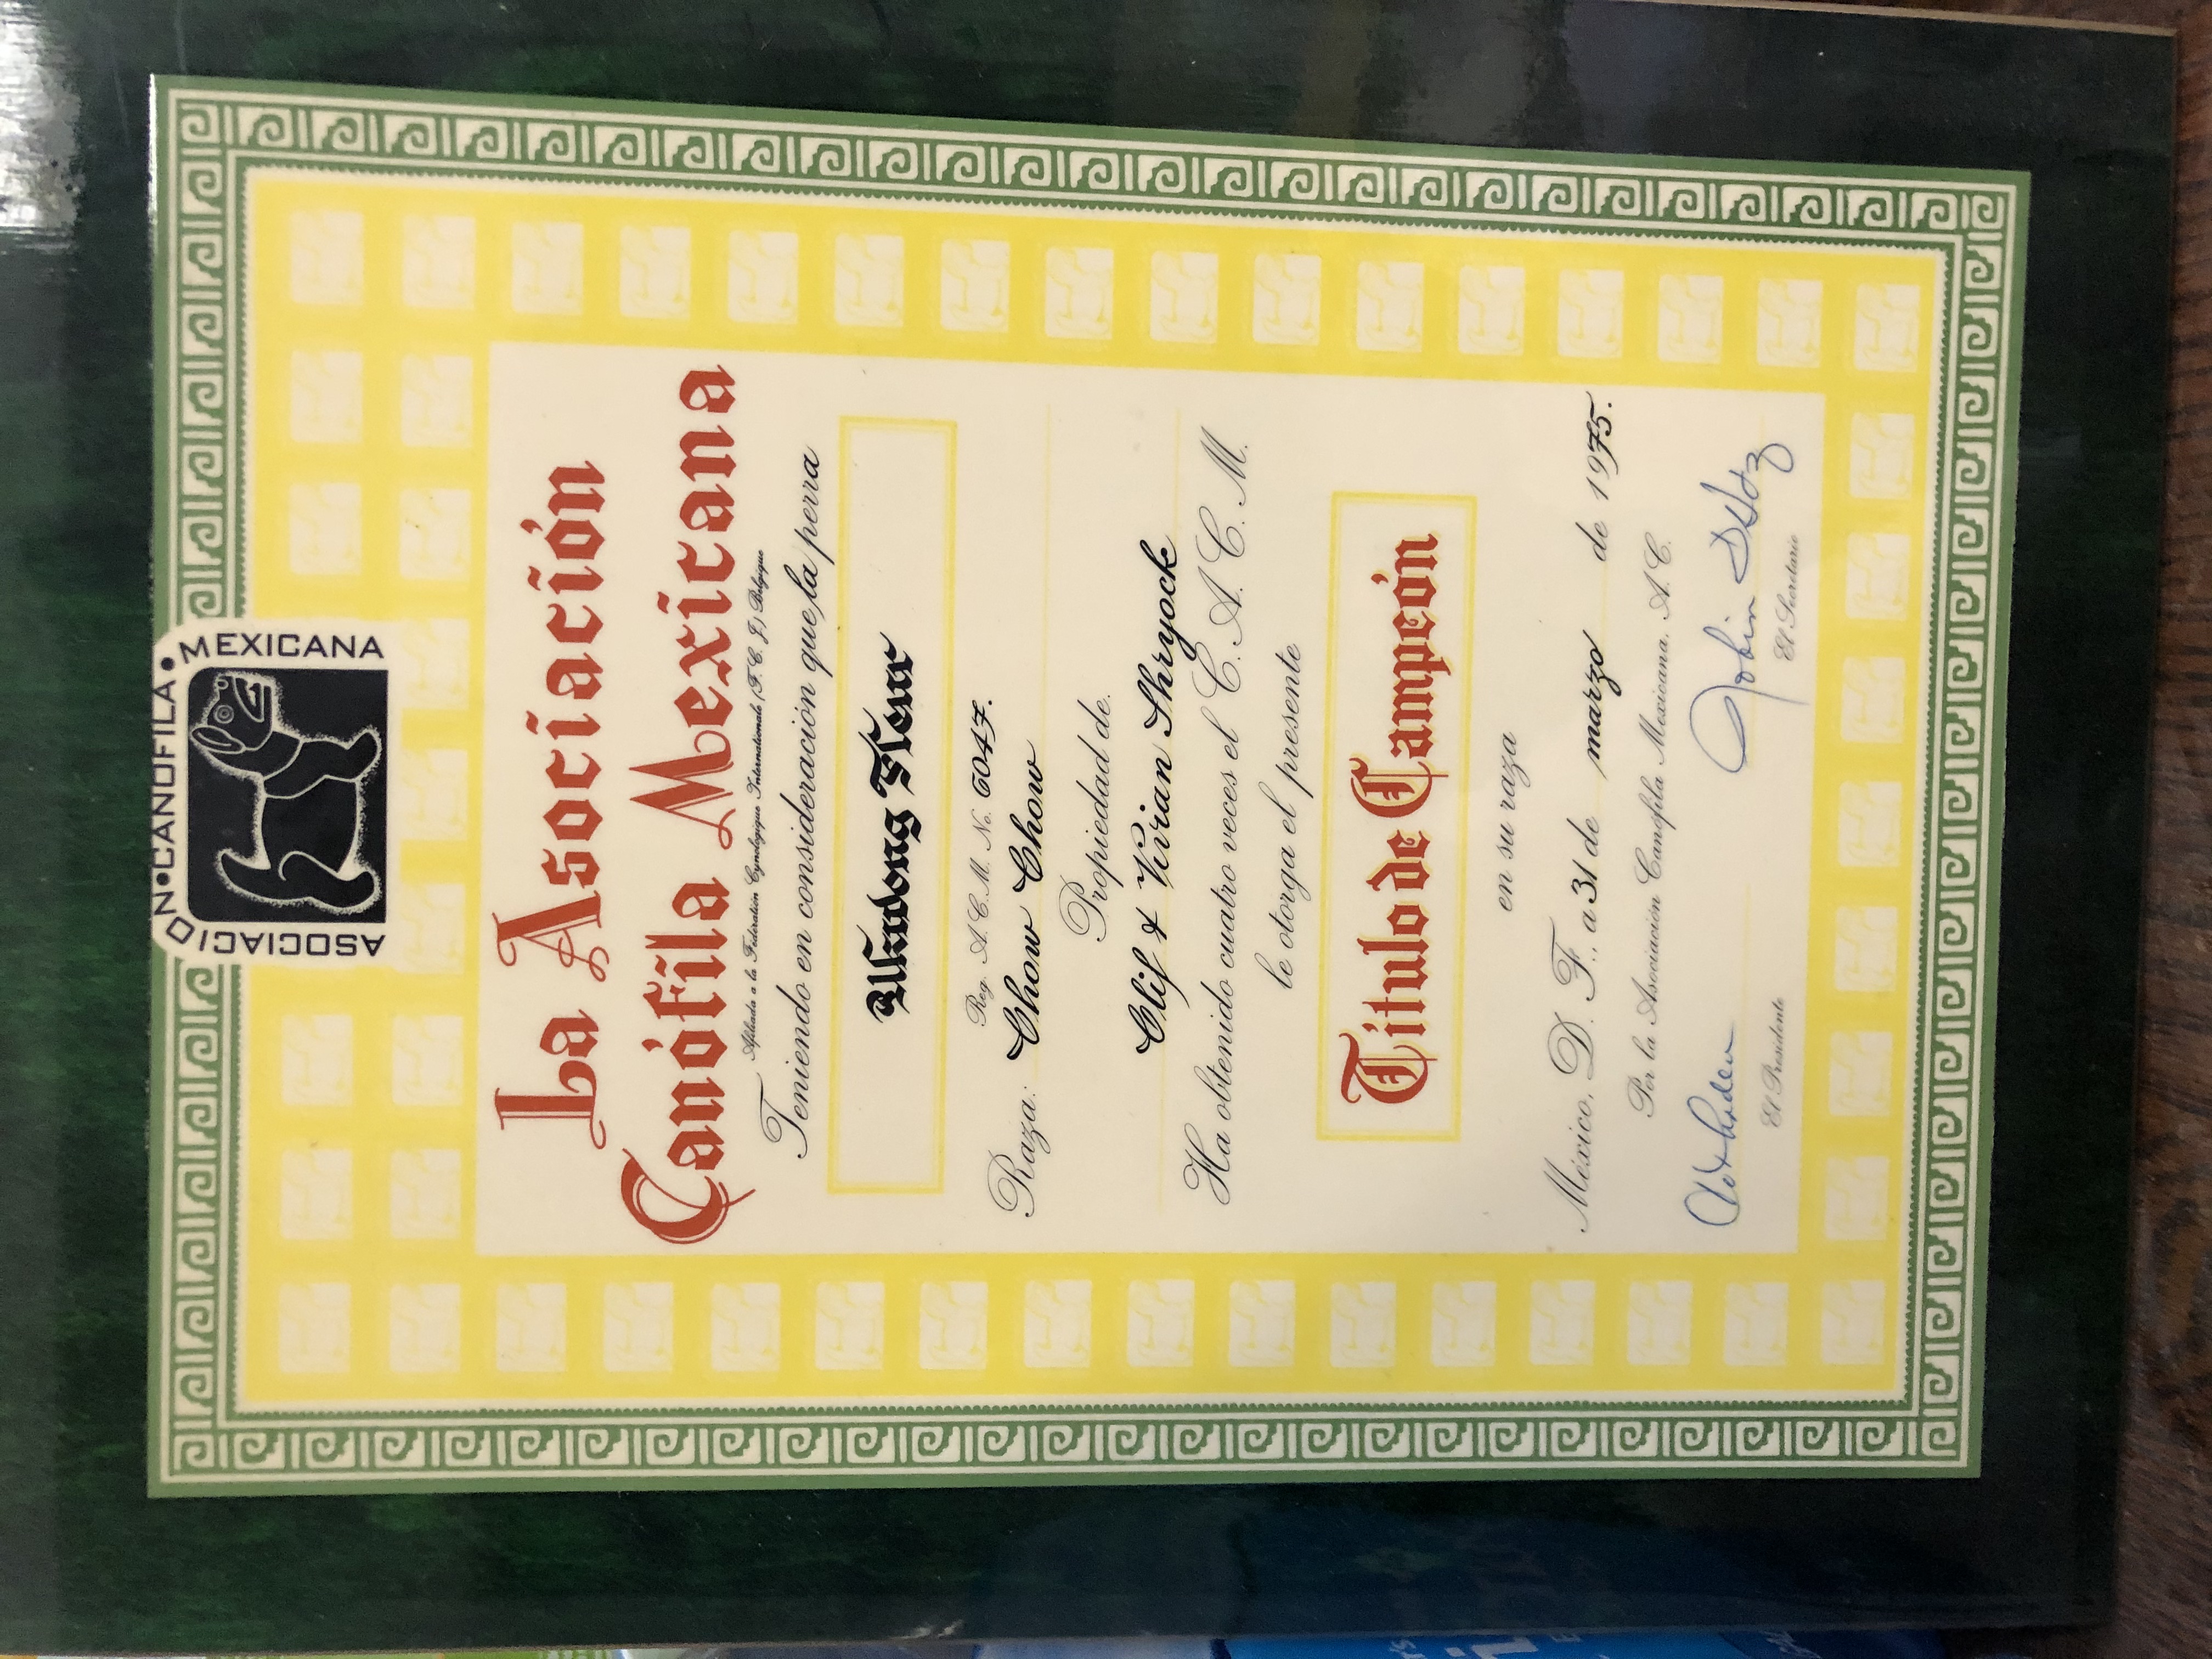 ASOCIACION•CANOFILA•MEXICANA
La Asociación
Canófila Mexicana
Afiliada a la Féderatión Cynologique Internationale (F. C. J.) Belgique
Teniendo en consideración que la perra
Ukwong Fleur
Reg. A. C. M. No. 6047.
Raza: Chow Chow
Propiedad de.
Clif & Vivian Shryock
Ha obtenido cuatro veces el C. A. C. M.
le otorga el presente
Titulo de Campeón
en su raza
México, D. F., a 31 de marzo de 1975.
Por la Asociación Canófila Mexicana, A. C.
El Presidente
El Secretario